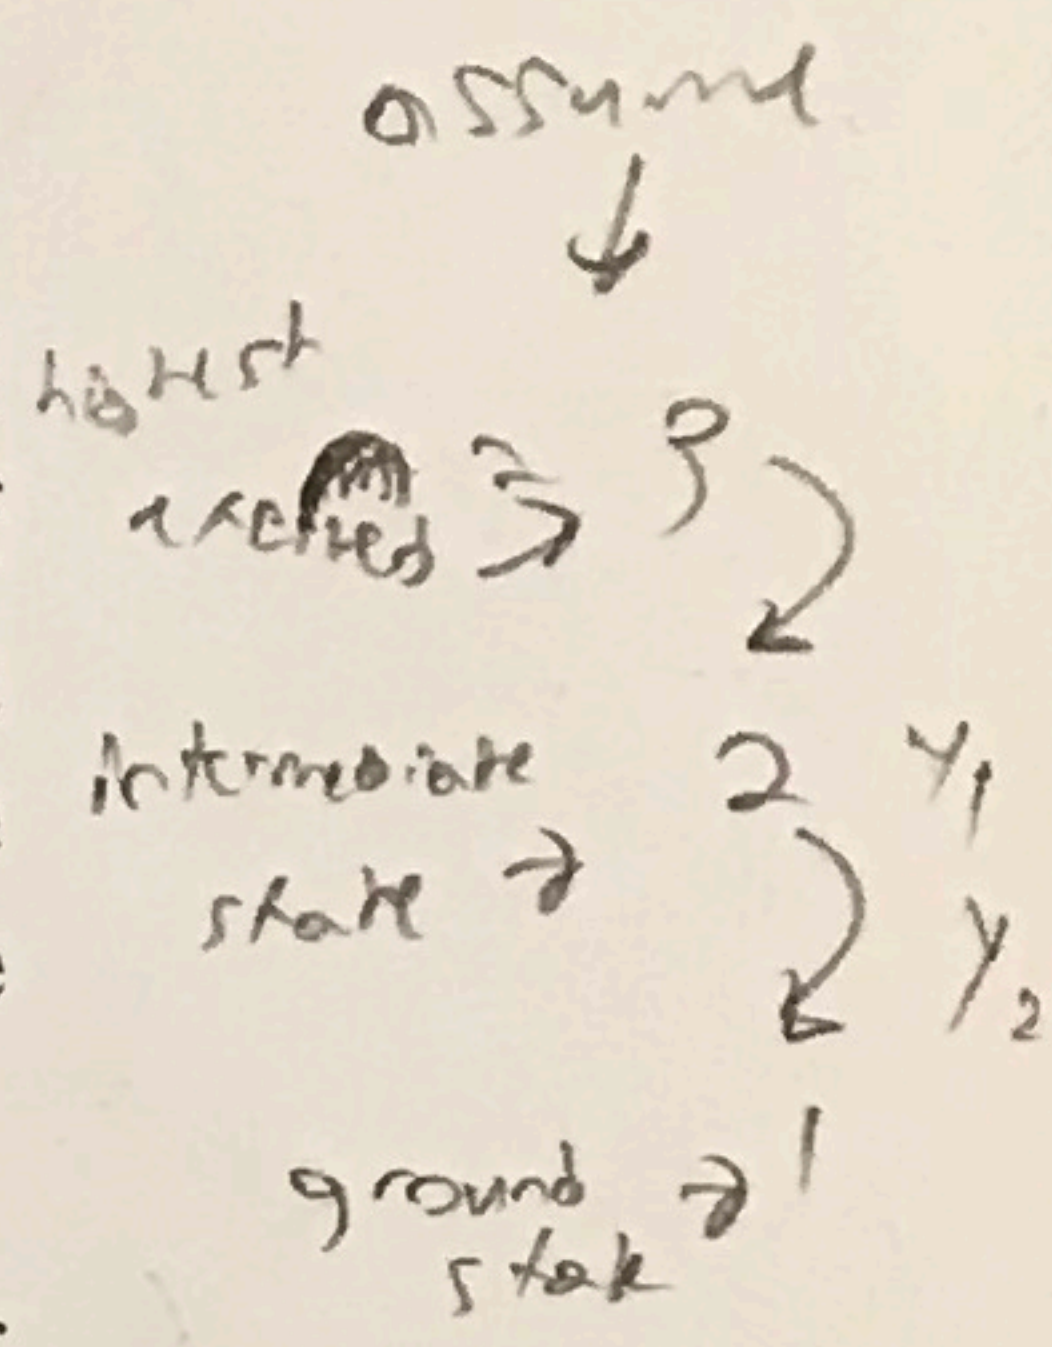 assume
↓
highest
excited → 3
intermediate 2 γ1
state →
γ2
ground → 1
state